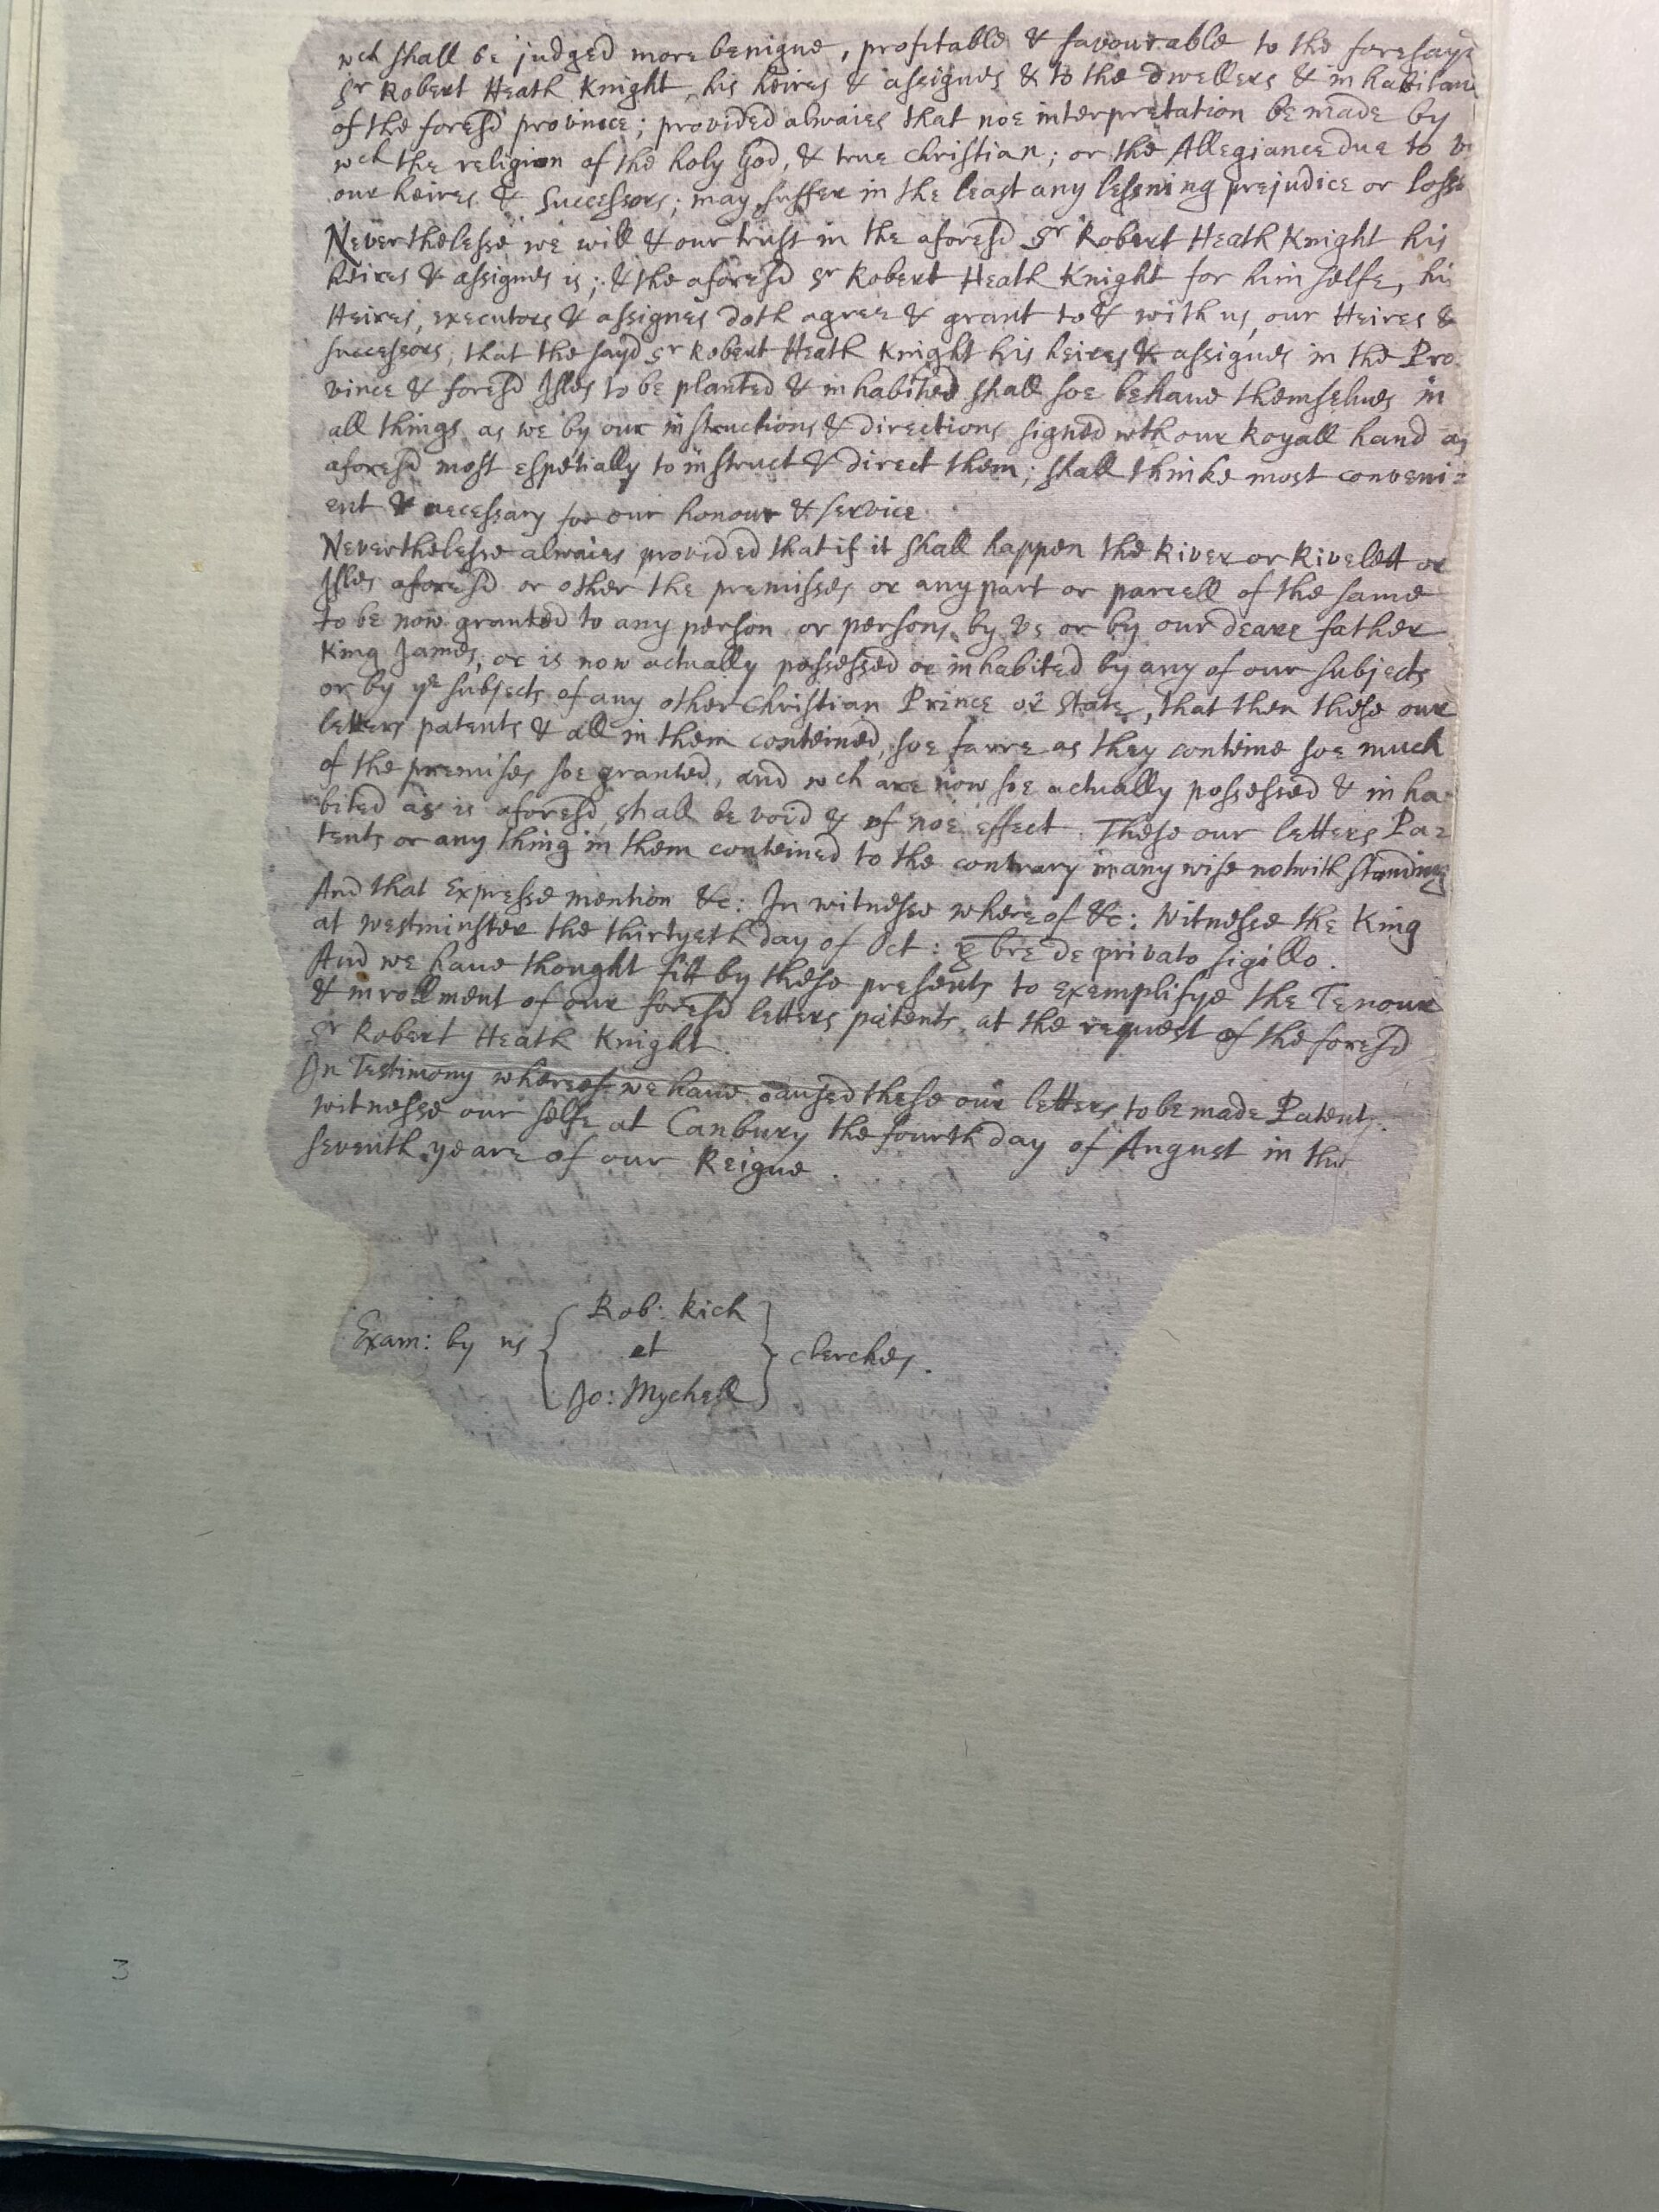 wch shall be judged more benigne, profitable & favourable to the foresayd
Sr Robert Heath Knight, his heires & assignes & to the dwellers & inhabitan
of the foresd province; provided alwaies that noe interpretation be made by
wch the religion of the holy God, & true Christian; or the Allegiance due to v
our heires & Successors; may suffer in the least any lessning prejudice or losse
Neverthelesse we will & our trust in the aforesd Sr Robert Heath Knight his
heires & assignes is; & the aforesd Sr Robert Heath Knight for him selfe, hi
Heires, executors & assignes doth agree & grant to & with us, our Heires &
successors, that the sayd Sr Robert Heath Knight his heires & assignes in the Pro
vince & foresd Isles to be planted & inhabited shall soe behave themselves in
all things as we by our instructions & directions signed wth our Royall hand as
aforesd most espetially to instruct & direct them; shall thinke most conveni=
ent & necessary for our honour & service.
Neverthelesse alwaies provided that if it shall happen the River or Rivelett or
Isles aforesd or other the premisses or any part or parcell of the same
to be now granted to any person or persons by vs or by our deare father
King James, or is now actually possessed or inhabited by any of our subjects
or by ye subjects of any other Christian Prince or State, that then these our
letters patents & all in them conteined, soe farre as they conteine soe much
of the premises soe granted, and wch are now soe actually possessed & inha
bited as is aforesd, shall be void & of noe effect. These our letters Pa=
tents or any thing in them conteined to the contrary in any wise notwith standing
And that Expresse mention &c: In witnesse where of &c: Witnesse the King
at Westminster the thirtyeth day of Oct: ꝑ bre de privato sigillo.
And we have thought fitt by these presents to exemplifye the Tenour
& inrollment of our foresd letters patents at the request of the foresd
Sr Robert Heath Knight.
In Testimony whereof we have caused these our letters to be made Patents.
witnesse our selfe at Canbury the fourth day of August in the
seventh yeare of our Reigne.
Rob: Rich
Exam: by us { et } clerches.
Jo: Mychell
3